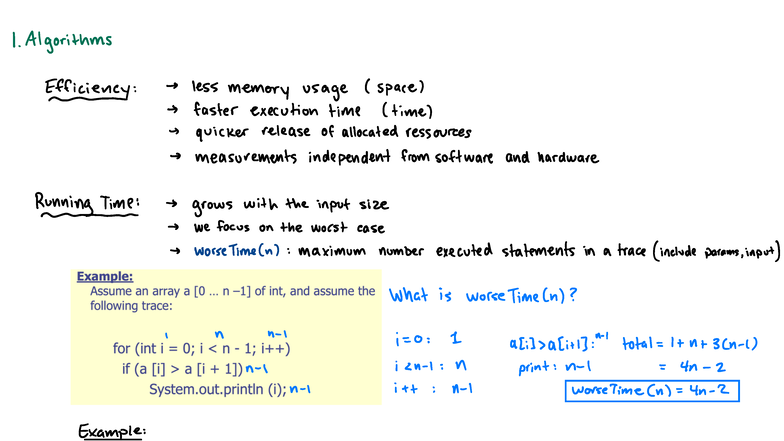 1. Algorithms
Efficiency: → less memory usage (space)
→ faster execution time (time)
→ quicker release of allocated ressources
→ measurements independent from software and hardware
Running Time: → grows with the input size
→ we focus on the worst case
→ worseTime(n) : maximum number executed statements in a trace (include params, input)
Example:
Assume an array a [0 ... n –1] of int, and assume the
following trace:
1 n n-1
for (int i = 0; i < n - 1; i++)
if (a [i] > a [i + 1]) n-1
System.out.println (i); n-1
What is worseTime(n)?
i=0: 1
i<n-1: n
i++ : n-1
a[i]>a[i+1]: n-1
print: n-1
total = 1 + n + 3(n-1)
= 4n - 2
worseTime(n) = 4n-2
Example: